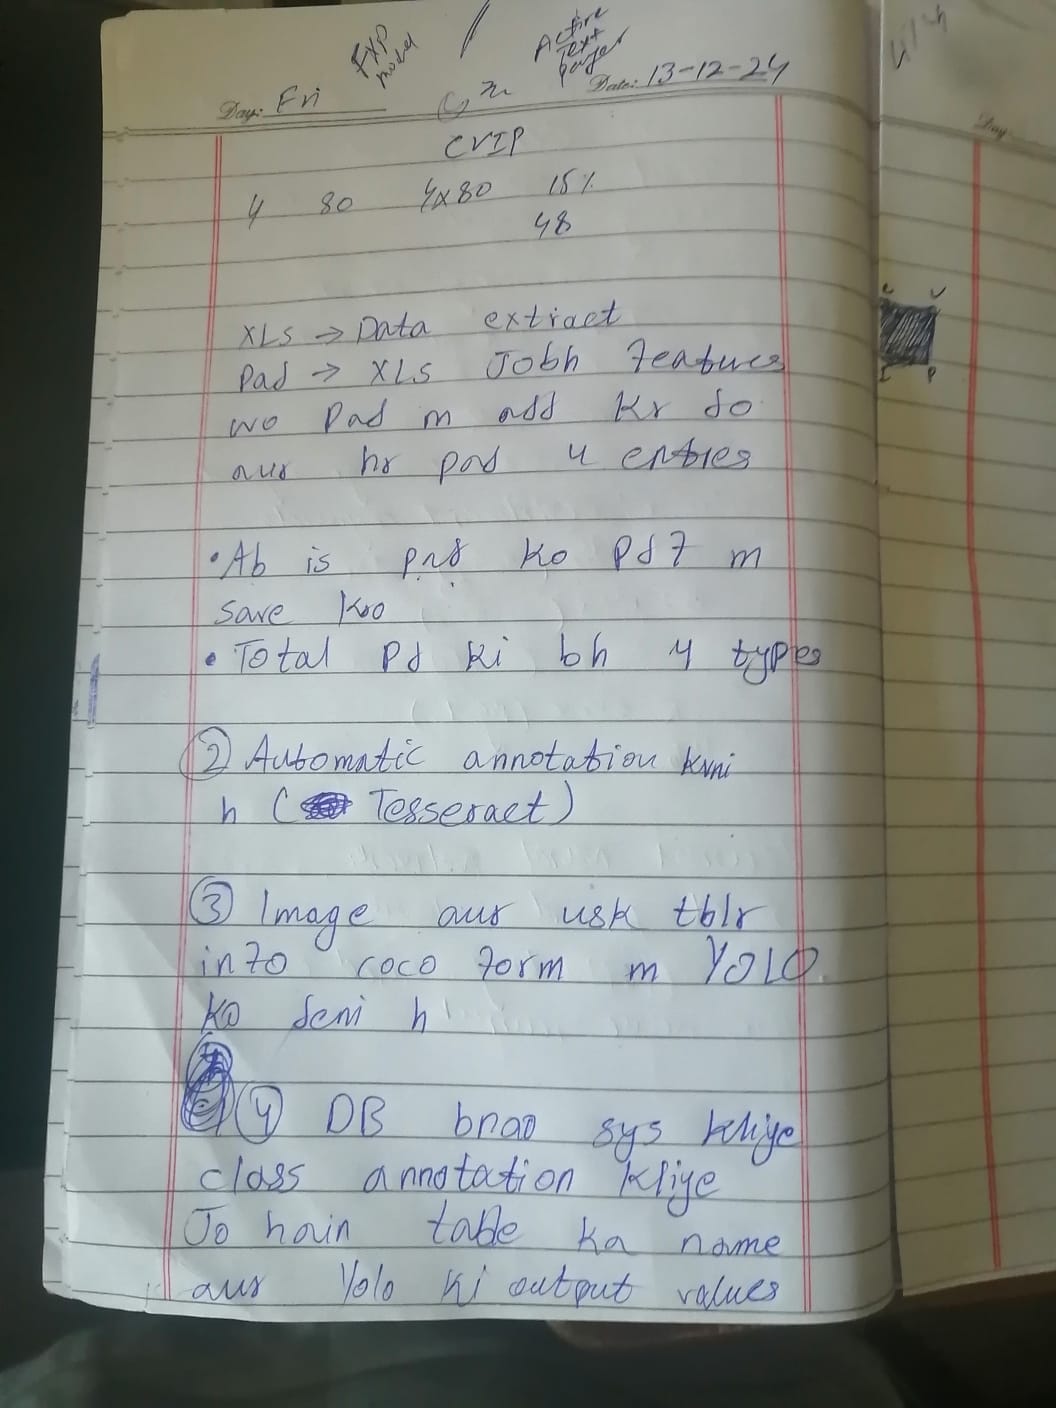 Exp
model
Active
Text
Day: Fri
Date: 13-12-24
CVIP
4 80 4x80 15%
48
XLS → Data extract
Pad → XLS Jobh features
wo Pad m add kr do
aur hr pad 4 entries
• Ab is pad ko pdf m
save kro
• Total Pd ki bh 4 types
② Automatic annotation krni
h ( Tesseract)
③ Image aur usk tblr
info coco form m YOLO
ko deni h
④ DB bnao sys kliye
class annotation kliye
Jo hain table ka name
aur Yolo ki output values
Day